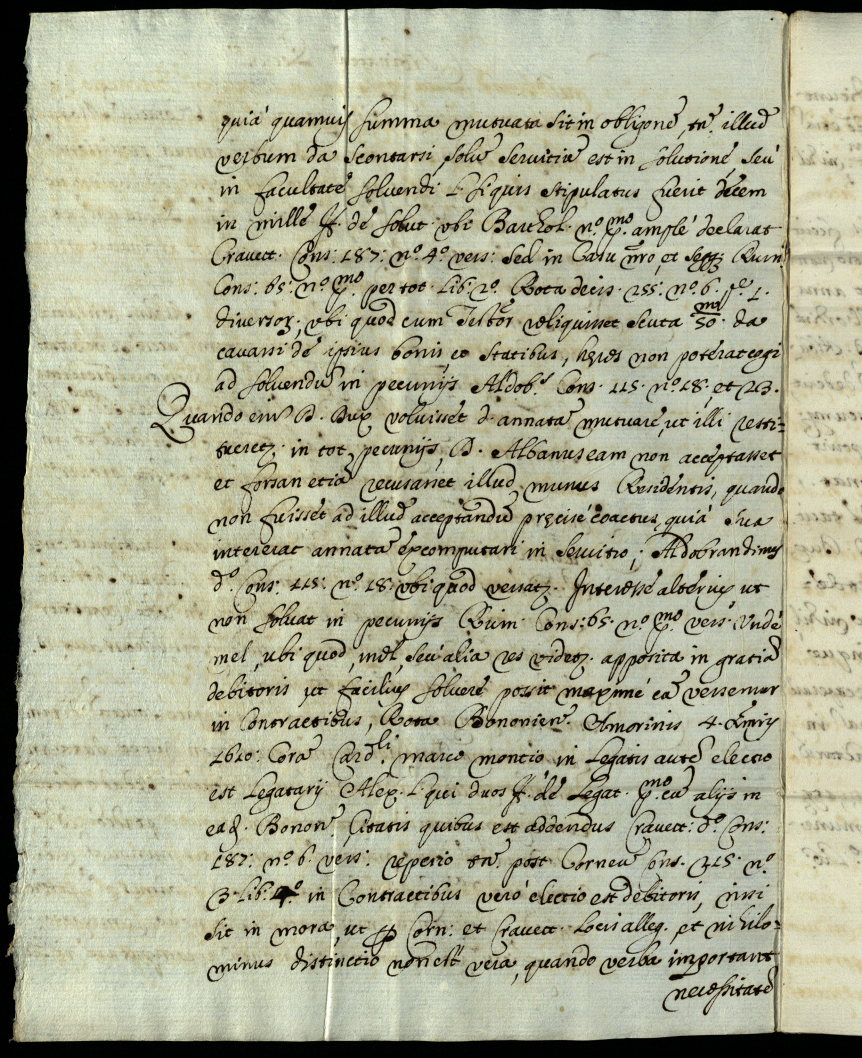 quia quamvis summa mutuata sit in obligone, tn. illud
verbum da scontarsi, solu servitiu est in solutione, seu
in facultate solvendi l. si quis stipulatus fuerit decem
in mille ff. de solut. ubi Barthol. n.º p.mo ample declarat
Cravett. Cons: 187: n.º 4º vers: sed in Casu nro, et seqq. Ruin.
Cons: 65: n.º p.mo per tot. lib. 2º. Rota decis. 255: n.º 6. p.e 1.
diversor., ubi quod cum Testor reliquisset scuta 50.ma da
cavarsi de ipsius bonis, et statibus, heres non poterat cogi
ad solvendu in pecunijs Aldob. Cons. 115. n.º 18. et 23.
Quando eni D. Dux voluisset d. annata mutuare, ut illi resti=
tueret, in tot pecunijs, D. Albanus eam non acceptasset
et forsan etia recusasset illud munus Residentis, quando
non fuisset ad illud acceptandu precise coactus, quia sua
intererat annata excomputari in servitio, Aldobrandinus
dº. Cons: 115: n.º 18. ubi quod versat. Interesse alterius ut
non solvat in pecunijs Ruin. Cons: 65. n.º p.mo vers. Unde
mel, ubi quod, mel, seu alia res videt. apposita in gratia
debitoris, ut facilius solvere possit maxime cu versemur
in Contractibus, Rota Bononien. Amorinis 4.
1610: Cora Card.li marco montio in Legatis aute electio
est Legatarij Alex. l. qui duos ff. de Legat. p.mo cu alijs in
ead. Bonon. Citatis quibus est addendus Cravett: dº. Cons:
187: n.º 6. vers: reperio tn. post Corneu Cons. 315. n.º
3. lib: 4º in Contractibus vero electio est debitoris, nisi
sit in mora, ut p Corn: et Cravett. Locis alleg., et nihilo=
minus distinctio non est vera, quando verba important
necessitate